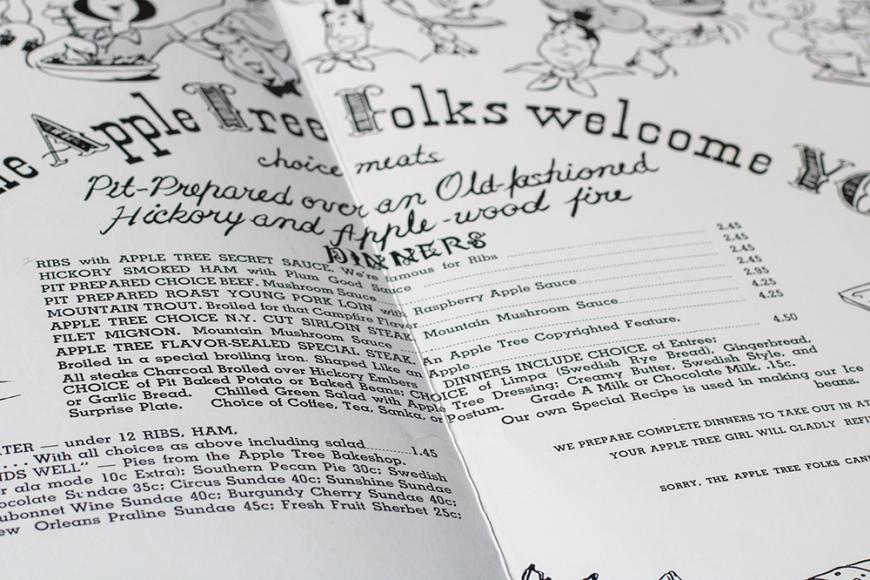 he Apple Tree Folks welcome Yo
choice meats
Pit-Prepared over an Old-fashioned
Hickory and Apple-wood fire
DINNERS
RIBS with APPLE TREE SECRET SAUCE. We're famous for Ribs 2.45
HICKORY SMOKED HAM with Plum Good Sauce 2.45
PIT PREPARED CHOICE BEEF. Mushroom Sauce 2.45
PIT PREPARED ROAST YOUNG PORK LOIN with Raspberry Apple Sauce 2.45
MOUNTAIN TROUT. Broiled for that Campfire Flavor 2.95
APPLE TREE CHOICE N.Y. CUT SIRLOIN STEAK Mountain Mushroom Sauce 4.25
FILET MIGNON. Mountain Mushroom Sauce 4.25
APPLE TREE FLAVOR-SEALED SPECIAL STEAK. An Apple Tree Copyrighted Feature.
Broiled in a special broiling iron. Shaped Like an Apple 4.50
All steaks Charcoal Broiled over Hickory Embers DINNERS INCLUDE CHOICE of Entree:
CHOICE of Pit Baked Potato or Baked Beans; CHOICE of Limpa (Swedish Rye Bread), Gingerbread,
or Garlic Bread. Chilled Green Salad with Apple Tree Dressing; Creamy Butter, Swedish Style, and
Surprise Plate. Choice of Coffee, Tea, Sanka, or Postum. Grade A Milk or Chocolate Milk, .15c.
Our own Special Recipe is used in making our Ice
beans.
ATER — under 12 RIBS, HAM,
.... With all choices as above including salad........1.45
NDS WELL" — Pies from the Apple Tree Bakeshop.
r ala mode 10c Extra); Southern Pecan Pie 30c; Swedish
ocolate Sundae 35c; Circus Sundae 40c; Sunshine Sundae
ubonnet Wine Sundae 40c; Burgundy Cherry Sundae 40c;
ew Orleans Praline Sundae 45c; Fresh Fruit Sherbet 25c;
WE PREPARE COMPLETE DINNERS TO TAKE OUT IN AT
YOUR APPLE TREE GIRL WILL GLADLY REFI
SORRY, THE APPLE TREE FOLKS CAN